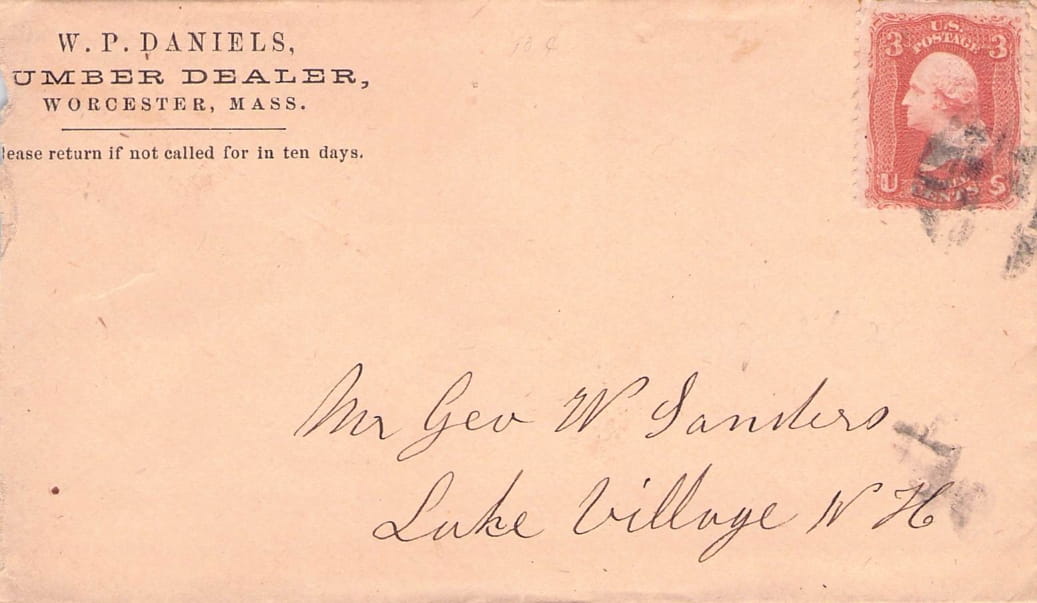 W. P. DANIELS,
UMBER DEALER,
WORCESTER, MASS.
lease return if not called for in ten days.
3 U.S. POSTAGE 3
U CENTS S
Mr Geo W Sanders
Lake Village N H